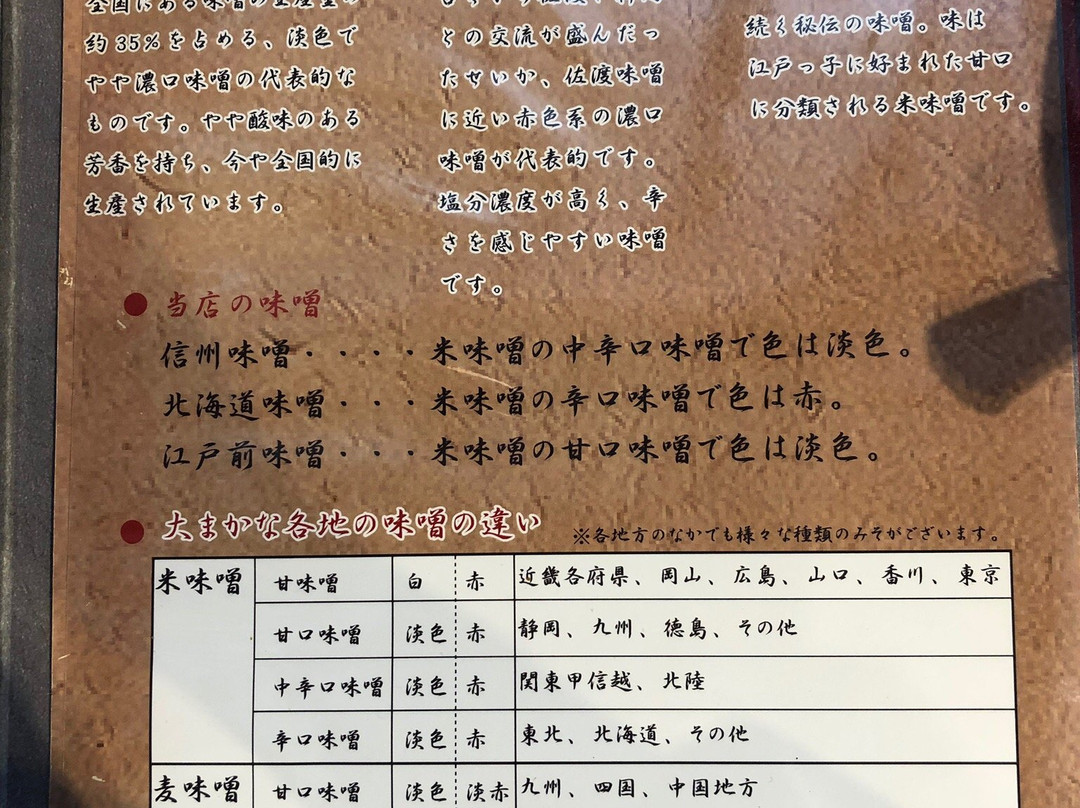 全国にある味噌の生産量の
約35%を占める、淡色で
やや濃口味噌の代表的な
ものです。やや酸味のある
芳香を持ち、今や全国的に
生産されています。
との交流が盛んだっ
たせいか、佐渡味噌
に近い赤色系の濃口
味噌が代表的です。
塩分濃度が高く、辛
さを感じやすい味噌
です。
続く秘伝の味噌。味は
江戸っ子に好まれた甘口
に分類される米味噌です。
● 当店の味噌
信州味噌・・・・米味噌の中辛口味噌で色は淡色。
北海道味噌・・・米味噌の辛口味噌で色は赤。
江戸前味噌・・・米味噌の甘口味噌で色は淡色。
● 大まかな各地の味噌の違い ※各地方のなかでも様々な種類のみそがございます。
米味噌 甘味噌 白 赤 近畿各府県、岡山、広島、山口、香川、東京
甘口味噌 淡色 赤 静岡、九州、徳島、その他
中辛口味噌 淡色 赤 関東甲信越、北陸
辛口味噌 淡色 赤 東北、北海道、その他
麦味噌 甘口味噌 淡色 淡赤 九州、四国、中国地方